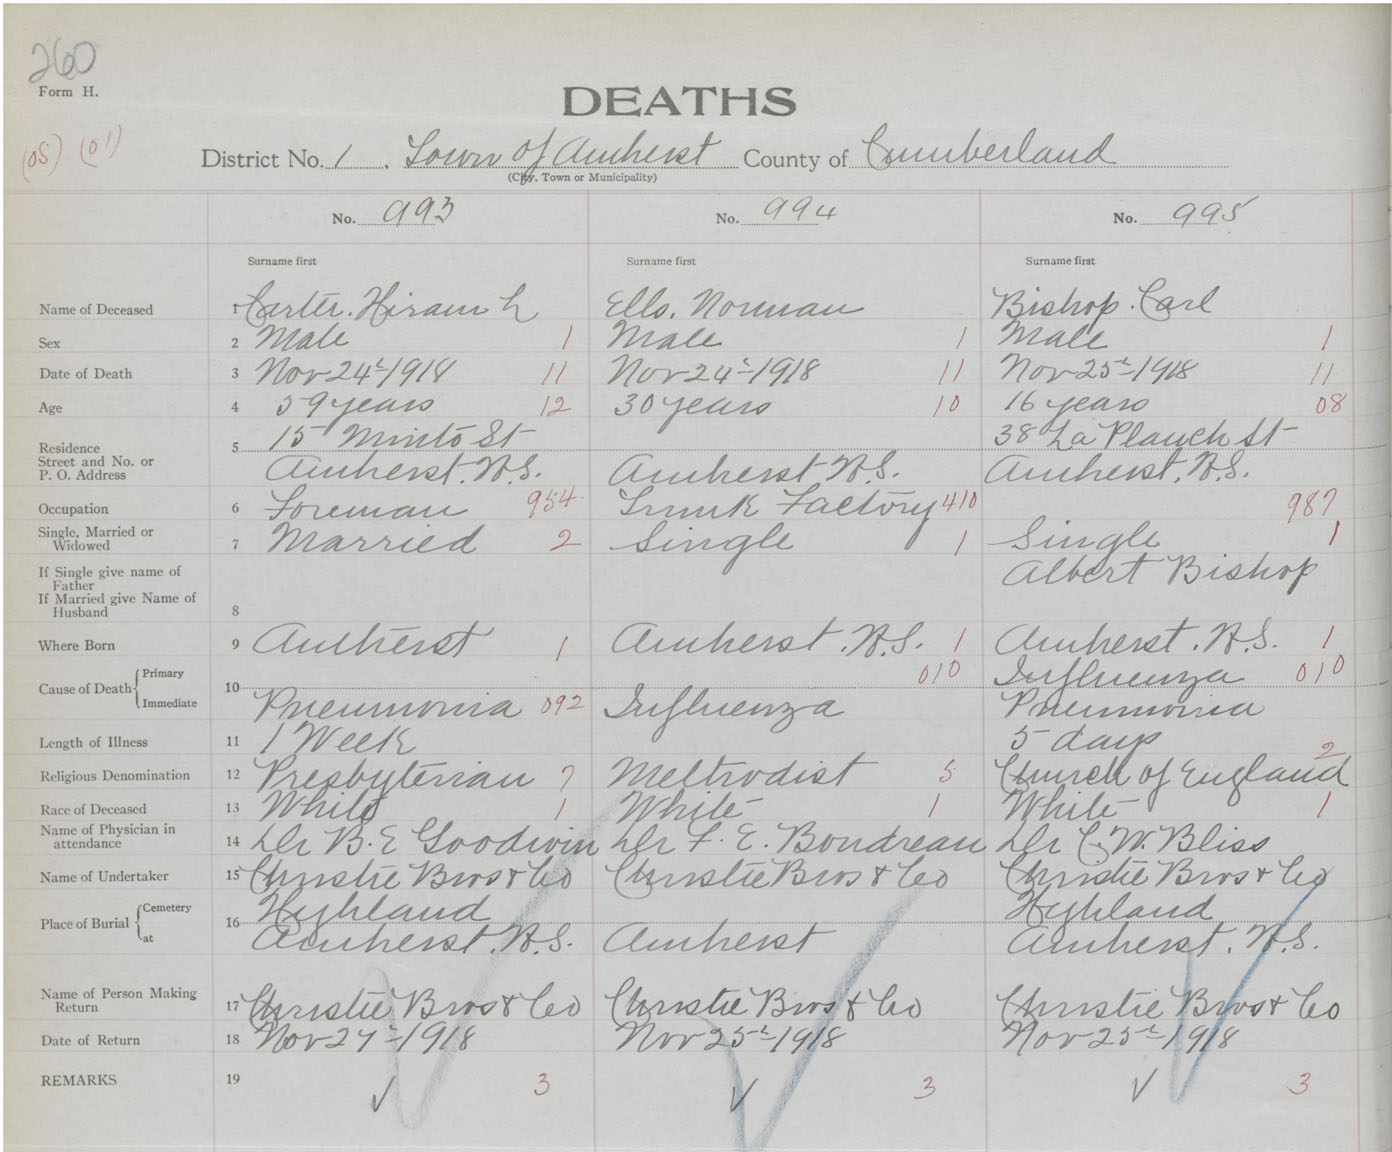 260
Form H.
DEATHS
(05) (01)
District No. 1, Town of Amherst County of Cumberland
(City, Town or Municipality)
No. 993 No. 994 No. 995
Surname first Surname first Surname first
Name of Deceased 1 Carter. Hiram L Ells. Norman Bishop. Carl
Sex 2 Male 1 Male 1 Male 1
Date of Death 3 Nov 24th 1918 11 Nov 24th 1918 11 Nov 25th 1918 11
Age 4 59 years 12 30 years 10 16 years 08
Residence 5 15 Minto St 38 La Planch St
Street and No. or
P. O. Address Amherst. N.S. Amherst N.S. Amherst. N.S.
Occupation 6 Foreman 954 Trunk Factory 410 987
Single, Married or
Widowed 7 Married 2 Single 1 Single 1
If Single give name of
Father Albert Bishop
If Married give Name of
Husband 8
Where Born 9 Amherst 1 Amherst. N.S. 1 Amherst. N.S. 1
Cause of Death Primary 10 010 Influenza 010
Immediate Pneumonia 092 Influenza Pneumonia
Length of Illness 11 1 Week 5 days
Religious Denomination 12 Presbyterian 7 Methodist 5 Church of England 2
Race of Deceased 13 White 1 White 1 White 1
Name of Physician in
attendance 14 Dr B. E Goodwin Dr F. E. Boudreau Dr C. W. Bliss
Name of Undertaker 15 Christie Bros & Co Christie Bros & Co Christie Bros & Co
Place of Burial Cemetery 16 Highland Highland
at Amherst. N.S. Amherst Amherst. N.S.
Name of Person Making
Return 17 Christie Bros & Co Christie Bros & Co Christie Bros & Co
Date of Return 18 Nov 27th 1918 Nov 25th 1918 Nov 25th 1918
REMARKS 19 3 3 3